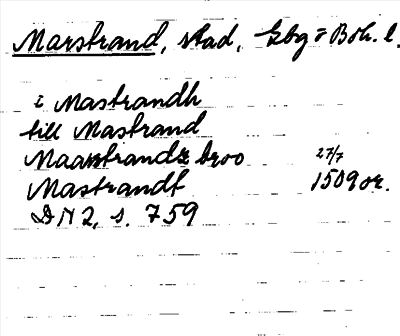 Marstrand, stad, Gbg o Boh. l.
i Mastrandh
till Mastrand
Maarstrandz broo 27/7
Mastrandt 1509 or.
DN 2, s. 759